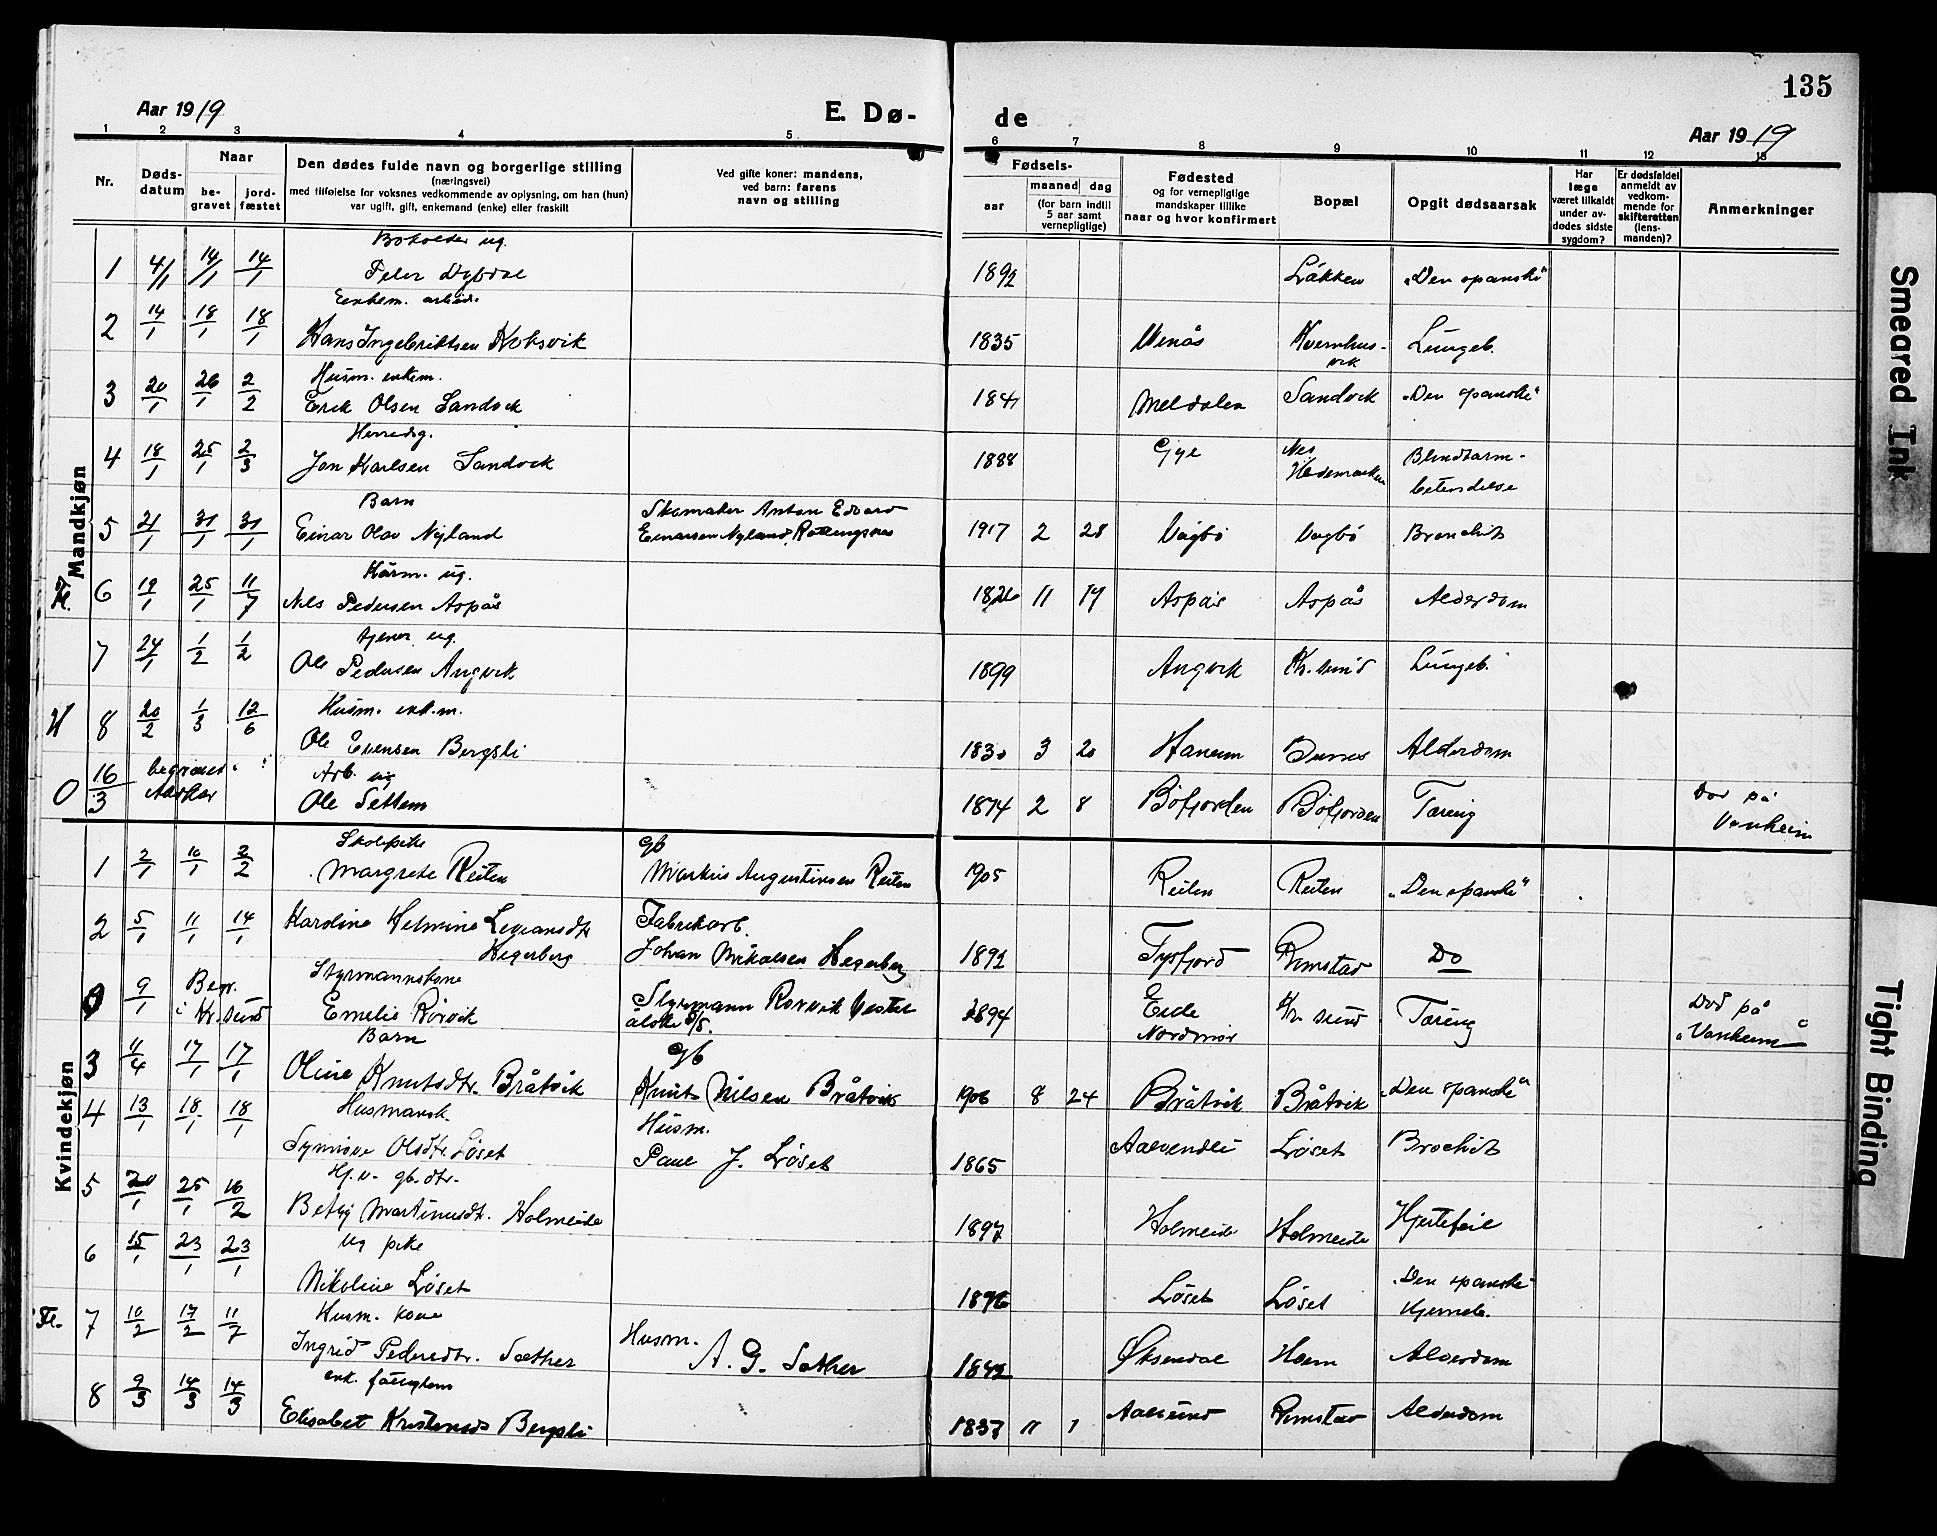 135
Aar 1919
E. Dø-
de
Aar 1919
1 2 3 4 5 6 7 8 9 10 11 12 13
Nr.
Døds-
datum
Naar
be-
gravet
jord-
fæstet
Den dødes fulde navn og borgerlige stilling
(næringsvei)
med tilføielse for voksnes vedkommende av oplysning, om han (hun)
var ugift, gift, enkemand (enke) eller fraskilt
Ved gifte koner: mandens,
ved barn: farens
navn og stilling
Fødsels-
aar
maaned dag
(for barn indtil
5 aar samt
vernepligtige)
Fødested
og for vernepligtige
mandskaper tillike
naar og hvor konfirmert
Bopæl
Opgit dødsaarsak
Har
læge
været tilkaldt
under av-
dødes sidste
sygdom?
Er dødsfaldet
anmeldt av
vedkom-
mende for
skifteretten
(lens-
manden)?
Anmerkninger
Mandkjøn
Bokolder ug.
1 4/1 14/1 14/1 Peter Dybdal 1892 Løkken „Den spanske"
Enkem. arbeid.
2 14/1 18/1 18/1 Hans Ingebriktsen Koksvik 1835 Kvernhus-
vik Lungeb.
Husm. enkem.
3 20/1 26/1 2/2 Erik Olsen Sandvik 1841 Meldalen Sandvik „Den spanske"
4 18/1 25/1 2/3 Jon Karlsen Sandvik 1888 Gyl Nes
Hedemarken Blindtarm-
betendelse
Barn
5 21/1 31/1 31/1 Einar Olav Nyland Skomaker Anton Edvard
Einarsen Nyland, 1917 2 28 Vågbø Vågbø Bronchit
Kårm. ug.
6 19/1 25/1 11/7 Nils Pedersen Aspås 1826 11 19 Aspås Aspås Alderdom
Tjener ug.
7 24/1 1/2 1/2 Ole Pedersen Angvik 1899 Angvik Kr. sund Lungeb.
Husm. enk.m.
8 20/2 1/3 12/6 Ole Evensen Bergsli 1830 3 20 Alderdom
Arb. ug
0 16/3 begravet
Ole Settem 1874 2 8 Bøfjorden Bøfjorden Tæring Død på
Vonheim
Kvindekjøn
Skolepike
1 2/1 10/1 2/2 Margrete Reiten gb
Markus Augustinsen Reiten 1905 Reiten Reiten „Den spanske"
2 5/1 11/1 14/1 Kardine Helmine
Hegerberg Fabrikarb.
Johan Mikalsen Hegerberg 1892 Tysfjord Rimstad Do
Styrmannskone
0 9/1 Begr.
i Kr. sund Emelie Rørvik Styrmann Rørvik 1894 Eide
Nordmør Kr. sund Tæring Død på
„Vonheim"
Barn
3 11/4 17/1 17/1 Oline Knutsdtr. Bråtvik gb
Knut Nilsen Bråtvik 1906 8 24 Bråtvik Bråtvik „Den spanske"
Husmansk.
4 13/1 18/1 18/1 Synnøve Olsdtr. Løset Husm.
Paul J. Løset 1865 Aalvundli Løset Brochit
Hj.v. gb.dtr.
5 20/1 25/1 16/2 Betzy Martinusdt. Holmeide 1897 Holmeide Holmeide Hjertefeil
ug pike
6 15/1 23/1 23/1 Nikoline Løset 1896 Løset Løset „Den spanske"
Husm. kone
7 10/2 17/2 11/7 Ingrid Pedersdtr. Sæther Husm.
A. G. Sæther 1842 Øksendal Hoem Alderdom
enk. fattiglem
8 9/3 14/3 14/3 Elisabet Bergsli 1837 11 1 Aalvund Rimstad Alderdom
Smeared Ink
Tight Binding